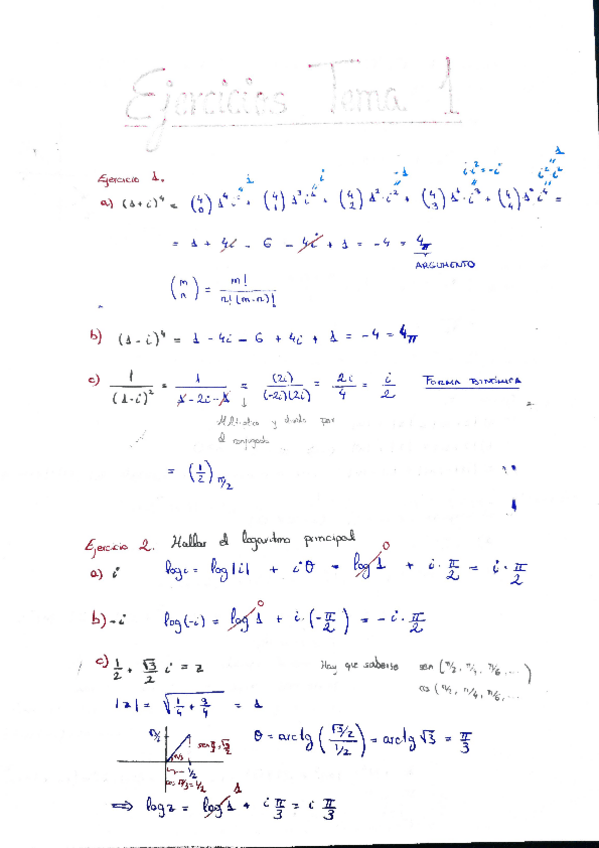 Ejercicios Tema 1
Ejercicio 1.
1 i -1 i·i²=-i i²·i² 1
a) (1+i)⁴ = (4 0) 1⁴·i⁰ + (4 1) 1³·i + (4 2) 1²·i² + (4 3) 1¹·i³ + (4 4) 1⁰·i⁴ =
= 1 + 4i - 6 - 4i + 1 = -4 = 4π
ARGUMENTO
(m n) = m! / n!(m-n)!
b) (1-i)⁴ = 1 - 4i - 6 + 4i + 1 = -4 = 4π
c) 1/(1-i)² = 1/(1-2i-1) = (2i)/(-2i)(2i) = 2i/4 = i/2 FORMA BINÓMICA
↓
Multiplico y divido por
el conjugado
= (1/2)π/2
Ejercicio 2. Hallar el logaritmo principal
a) i log i = log|i| + iθ = log 1 + i·π/2 = i·π/2
0
b) -i log(-i) = log 1 + i·(-π/2) = -i·π/2
0
c) 1/2 + √3/2 i = z Hay que saberse sen (π/2, π/4, π/6, ...)
cos (π/2, π/4, π/6, ...
|z| = √(1/4 + 3/4) = 1
√3/2 sen π/3 = √3/2 θ = arctg (√3/2 / 1/2) = arctg √3 = π/3
π/3
1/2
cos π/3 = 1/2
⟹ log z = log 1 + i π/3 = i π/3
1